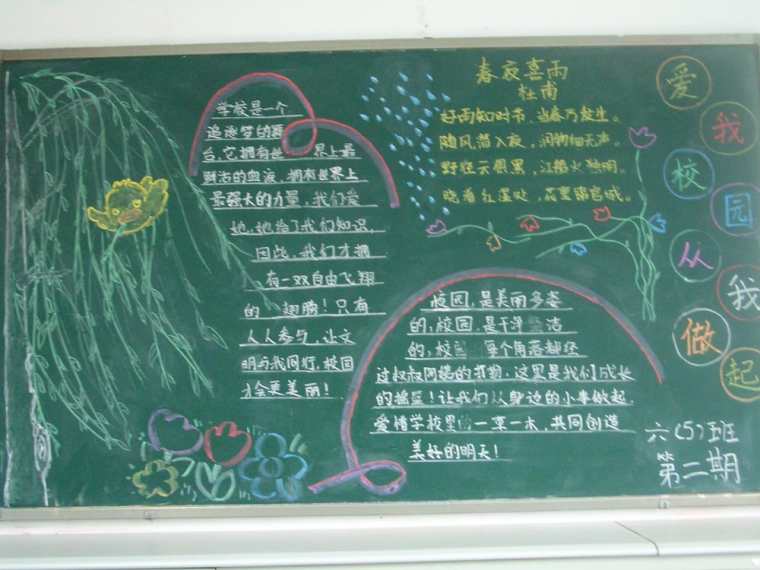 学校是一个
追逐梦的舞
台,它拥有世界上最
鲜活的血液,拥有世界上
最强大的力量,我们爱
她,她给了我们知识,
因此,我们才拥
有一双自由飞翔
的翅膀!只有
人人参与,让文
明与我同行,校园
才会更美丽!
春夜喜雨
杜甫
好雨知时节,当春乃发生。
随风潜入夜,润物细无声。
野径云俱黑,江船火独明。
晓看红湿处,花重锦官城。
爱
我
校
园
从
我
做
起
校园,是美丽多姿
的,校园,是干净整洁
的,校园 每个角落都经
过叔叔阿姨的 这里是我们成长
的摇篮!让我们从身边的小事做起,
爱惜学校里的一草一木,共同创造
美好的明天!
六(5)班
第二期